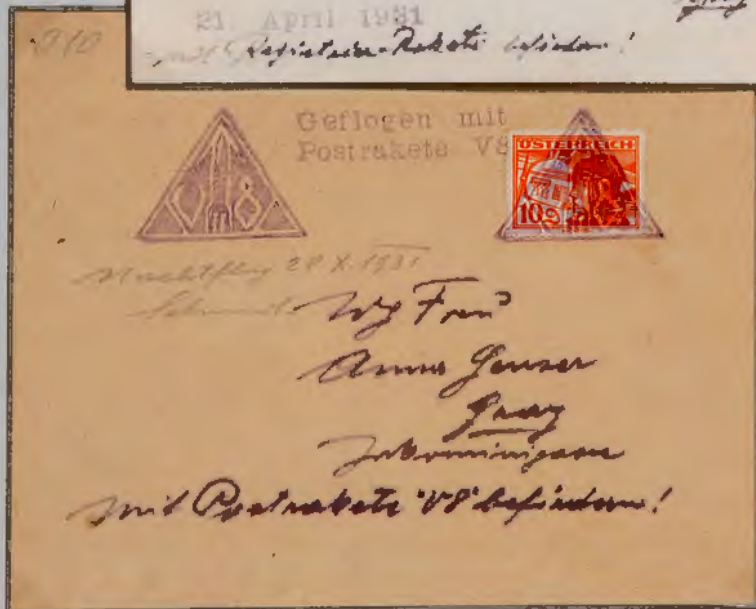 21. April 1931
mit Registrier-Rakete befördern!
Graz
310
Geflogen mit
Postrakete V8
V 8
ÖSTERREICH
10
Nachtflug 28 X. 1931
Schmiedl
Frau
Anna
Graz
Jakominigasse
mit Postrakete "V8" befördern!